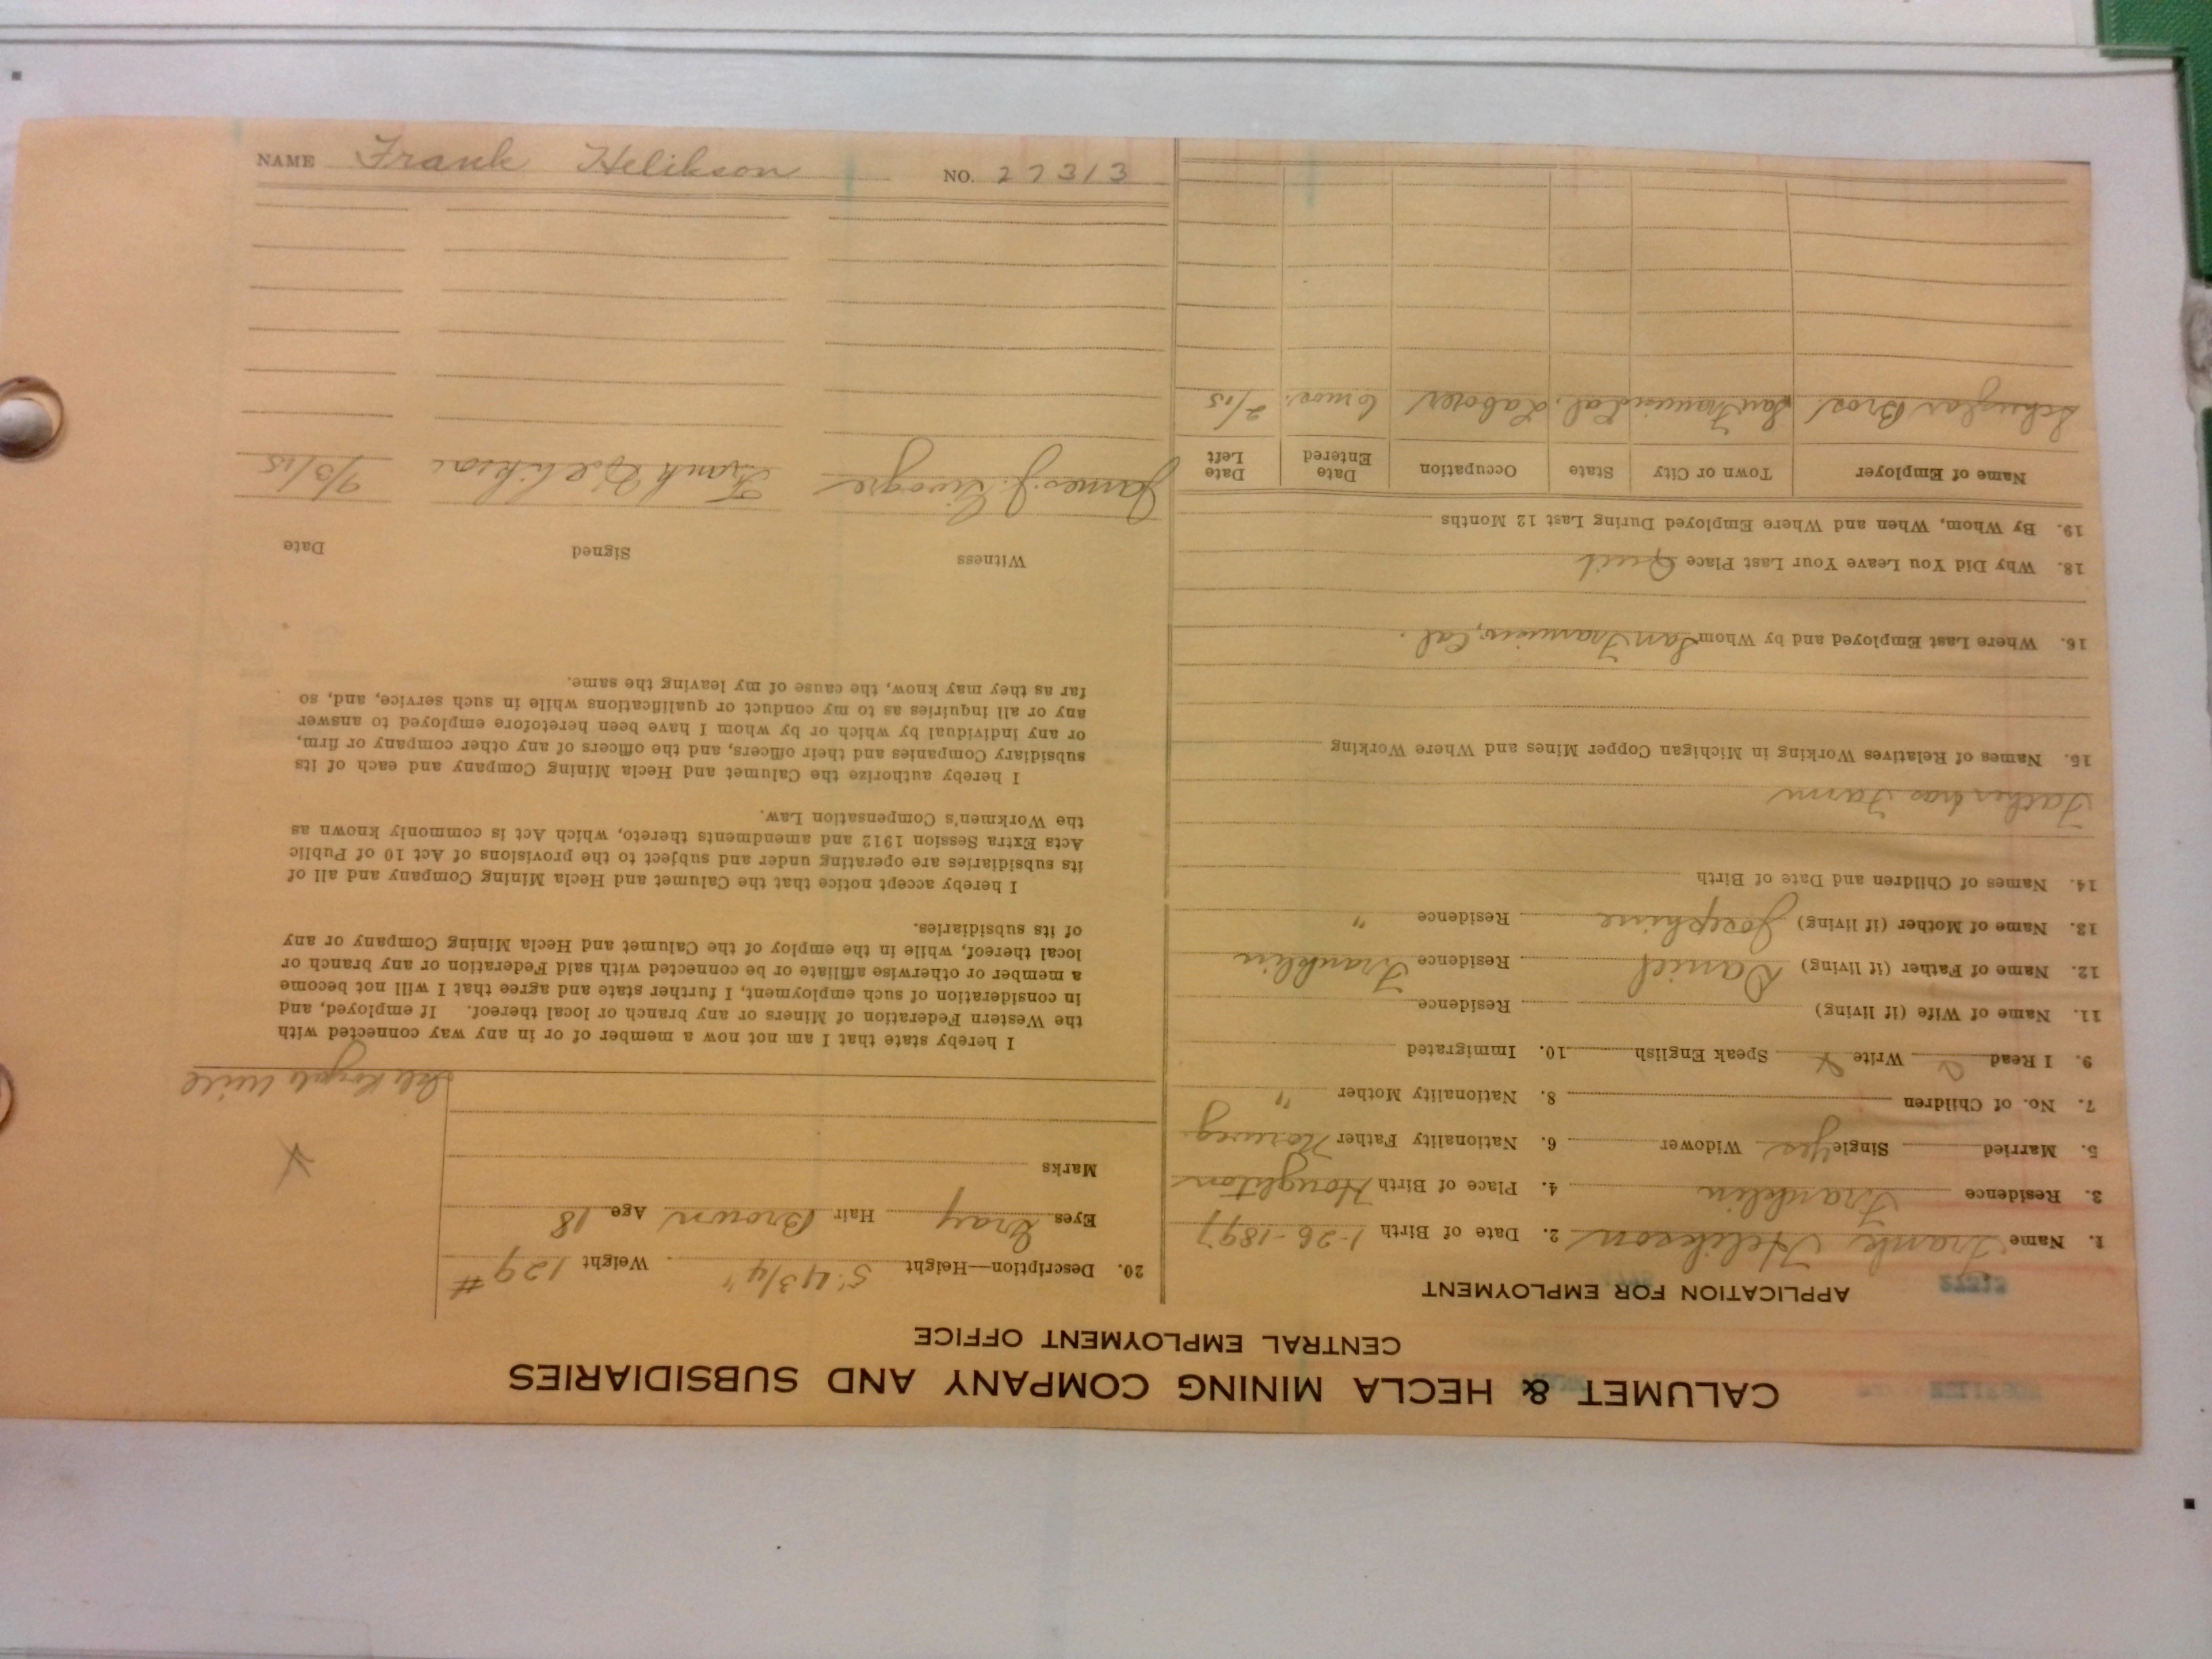 CALUMET & HECLA MINING COMPANY AND SUBSIDIARIES
CENTRAL EMPLOYMENT OFFICE
APPLICATION FOR EMPLOYMENT
1. Name Frank Helikson 2. Date of Birth 1-26-1897
3. Residence Franklin 4. Place of Birth Houghton
5. Married Single yes Widower 6. Nationality Father Norweg.
7. No. of Children 8. Nationality Mother "
9. I Read Write Speak English 10. Immigrated
11. Name of Wife (if living) Residence
12. Name of Father (if living) Daniel Residence Franklin
13. Name of Mother (if living) Josephine Residence "
14. Names of Children and Date of Birth
Father has Farm
15. Names of Relatives Working in Michigan Copper Mines and Where Working
16. Where Last Employed and by Whom San Francisco, Cal.
18. Why Did You Leave Your Last Place Quit
19. By Whom, When and Where Employed During Last 12 Months
Name of Employer Town or City State Occupation Date Entered Date Left
Bros. San Francisco Cal. Laborer 6 mos. 2/15
20. Description—Height 5' 4 3/4" Weight 129 #
Eyes Gray Hair Brown Age 18
Marks
Isle Royale Mill
I hereby state that I am not now a member of or in any way connected with
the Western Federation of Miners or any branch or local thereof. If employed, and
in consideration of such employment, I further state and agree that I will not become
a member or otherwise affiliate or be connected with said Federation or any branch or
local thereof, while in the employ of the Calumet and Hecla Mining Company or any
of its subsidiaries.
I hereby accept notice that the Calumet and Hecla Mining Company and all of
its subsidiaries are operating under and subject to the provisions of Act 10 of Public
Acts Extra Session 1912 and amendments thereto, which Act is commonly known as
the Workmen's Compensation Law.
I hereby authorize the Calumet and Hecla Mining Company and each of its
subsidiary Companies and their officers, and the officers of any other company or firm,
or any individual by which or by whom I have been heretofore employed to answer
any or all inquiries as to my conduct or qualifications while in such service, and, so
far as they may know, the cause of my leaving the same.
Witness Signed Date
James J. Frank Helikson 9/3/15
NAME Frank Helikson NO. 27313